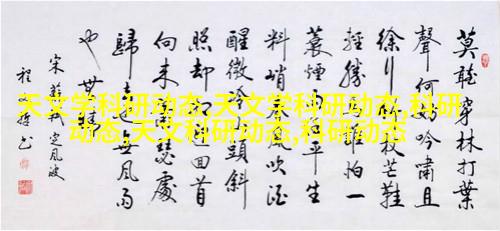 天文学科研动态,天文学科研动态,科研
动态,天文科研动态,科研动态
莫聽穿林打葉
聲何妨吟嘯且
徐行杖芒鞋
輕勝誰怕一
蓑煙任平生
料峭春吹酒
醒微冷頭斜
照却迎回首
向来瑟處
歸去無風雨
也無晴
宋蘇軾定風波
程